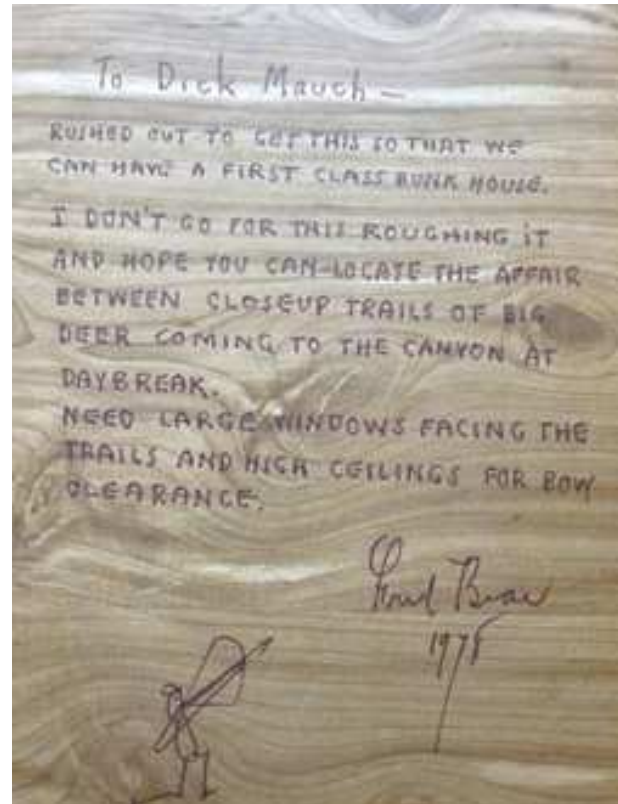 To Dick Mauch —
RUSHED OUT TO GET THIS SO THAT WE
CAN HAVE A FIRST CLASS BUNK HOUSE.
I DON'T GO FOR THIS ROUGHING IT
AND HOPE YOU CAN LOCATE THE AFFAIR
BETWEEN CLOSEUP TRAILS OF BIG
DEER COMING TO THE CANYON AT
DAYBREAK.
NEED LARGE WINDOWS FACING THE
TRAILS AND HIGH CEILINGS FOR BOW
CLEARANCE.
Fred Bear
1978